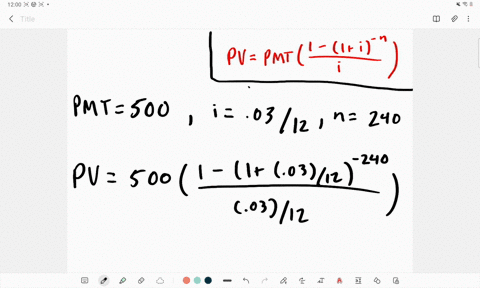 12:00
Title
PV = PMT ( 1 - (1+i)^-n / i )
PMT = 500 , i = .03/12 , n = 240
PV = 500 ( 1 - (1 + (.03)/12)^-240 / (.03)/12 )